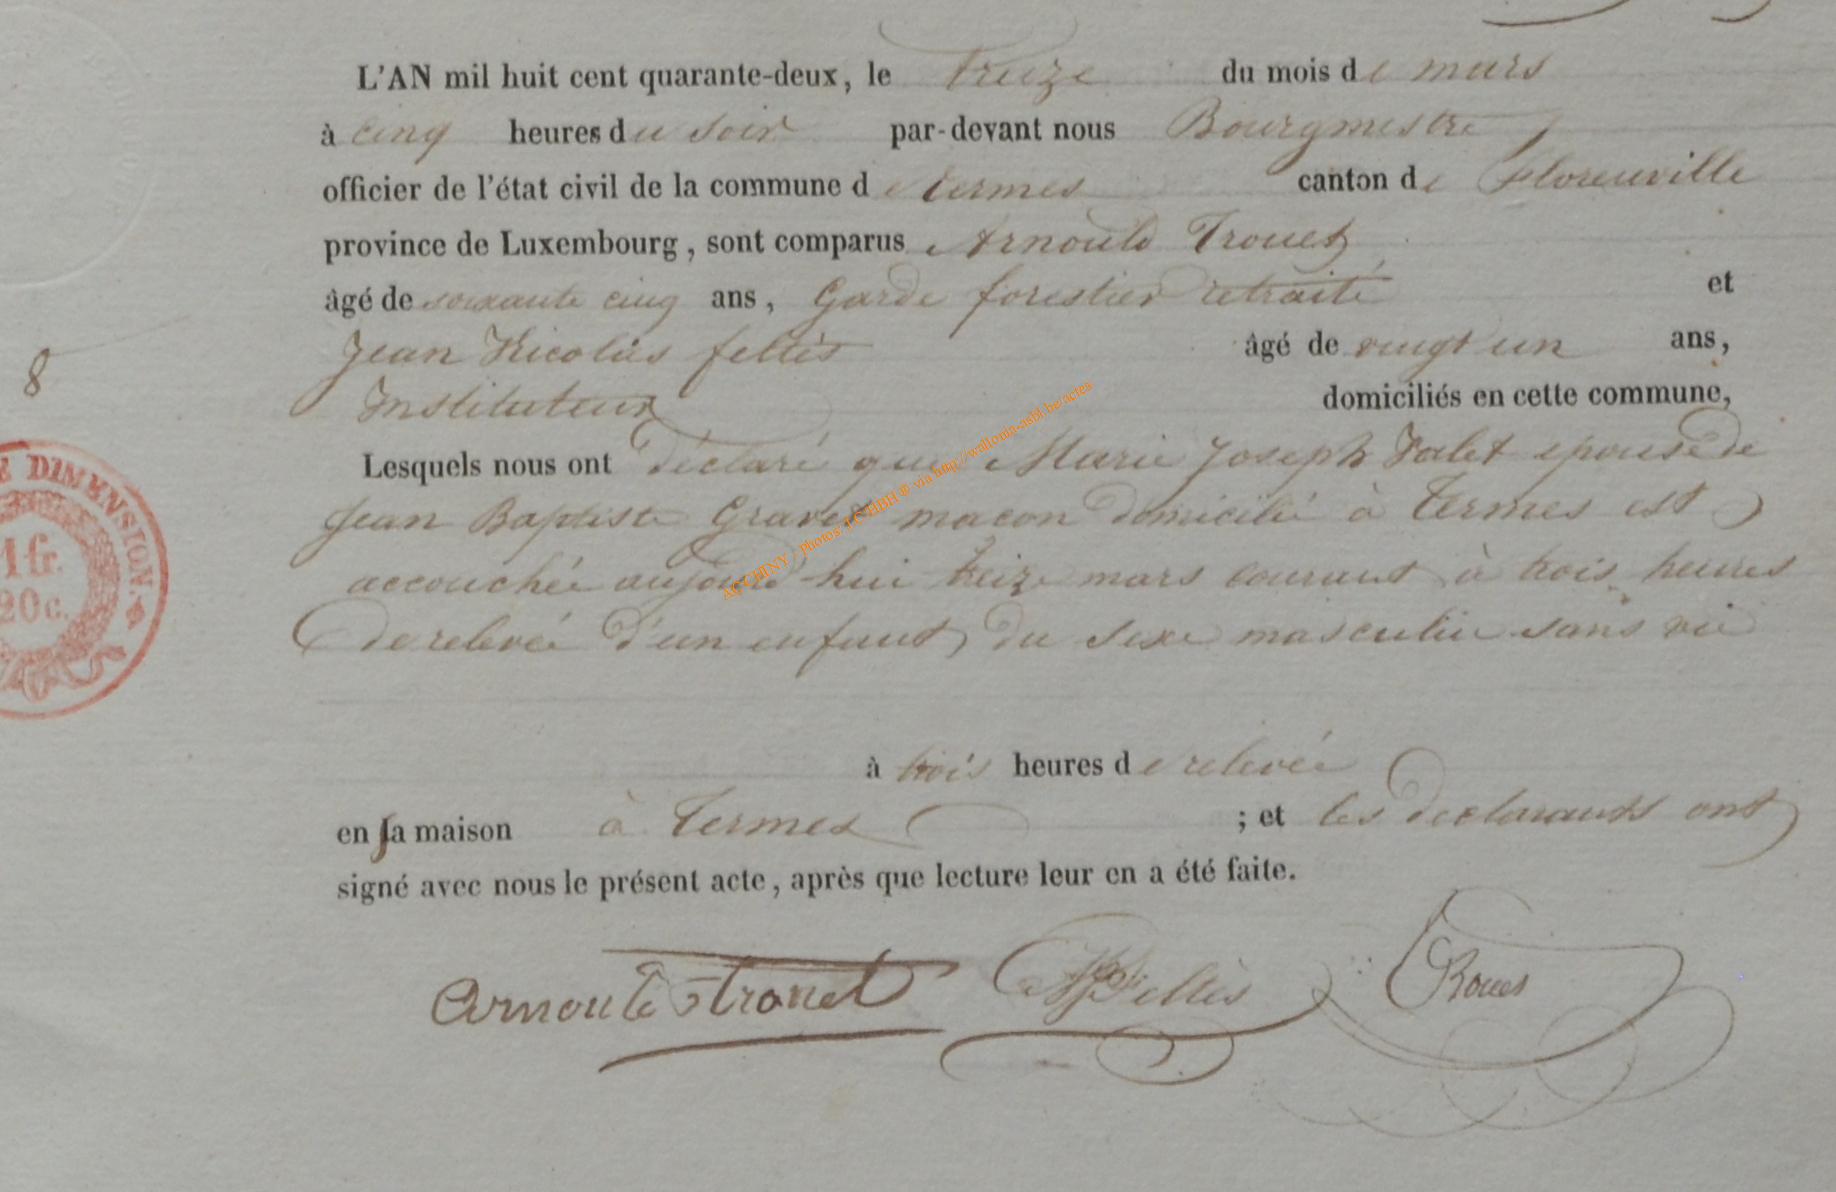 L'AN mil huit cent quarante-deux, le treize du mois de mars
à cinq heures du soir par-devant nous Bourgmestre
officier de l'état civil de la commune de termes canton de Florenville
province de Luxembourg, sont comparus Arnould Trouet
âgé de soixante cinq ans, Garde forestier retraité et
Jean Nicolas feltès âgé de vingt un ans,
Instituteur domiciliés en cette commune,
8
Lesquels nous ont déclaré que Marie Joseph Valet epouse de
Jean Baptiste Graves macon domicilié à termes est
accouchée aujourd'hui treize mars courant à trois heures
de relevée d'un enfant du sexe masculin sans vie
E DIMENSION.
1 fr.
20 c.
à trois heures de relevée
en sa maison à termes ; et les declarants ont
signé avec nous le présent acte, après que lecture leur en a été faite.
Arnould trouet Feltès
AC CHINY - Photos LC HBH ® via http://wallonia-asbl.be/actes